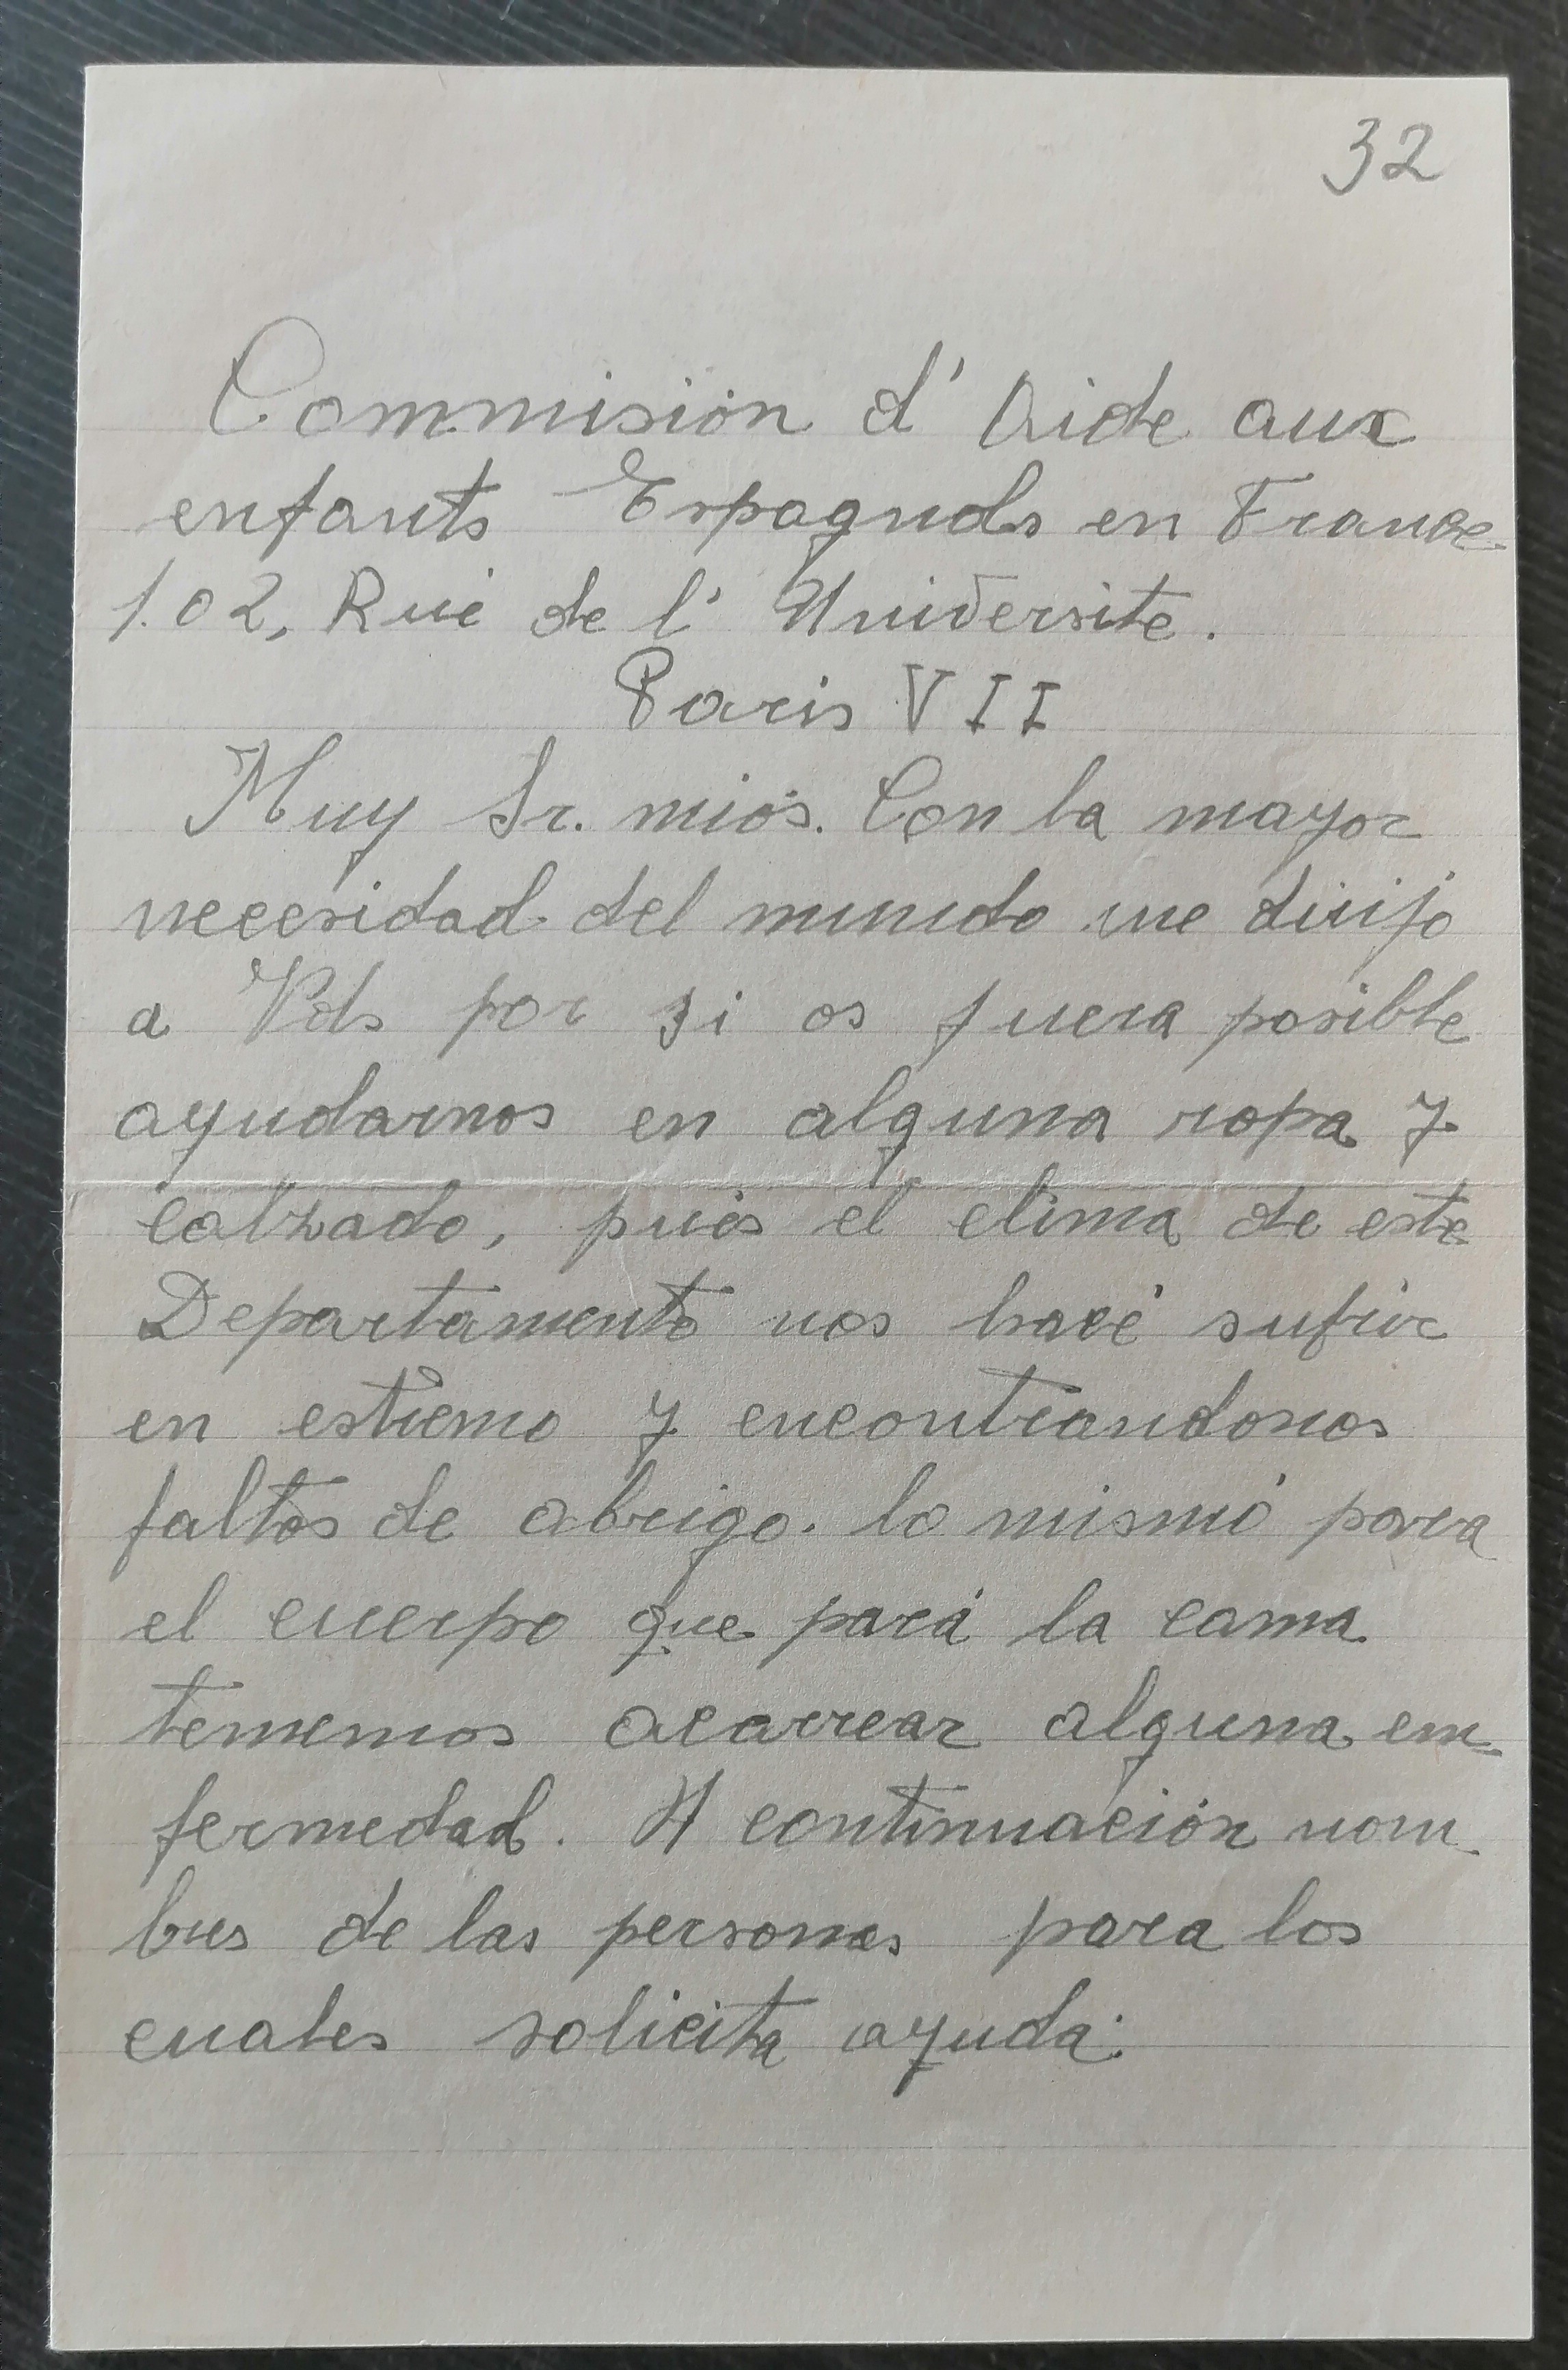 32
Commisión d' Aide aux
enfants Espagnols en France
1.02, Rue de l' Universite.
Paris VII
Muy Sr. mios. Con la mayor
necesidad del mundo me dirijo
a Vds por si os fuera posible
ayudarnos en alguna ropa y
calzado, pues el clima de este
Departamento nos hace sufrir
en estremo y encontrandonos
faltos de abrigo. lo mismo para
el cuerpo que para la cama
tememos acarrear alguna em
fermedad. A continuación nom
bres de las personas para los
cuales solicita ayuda: